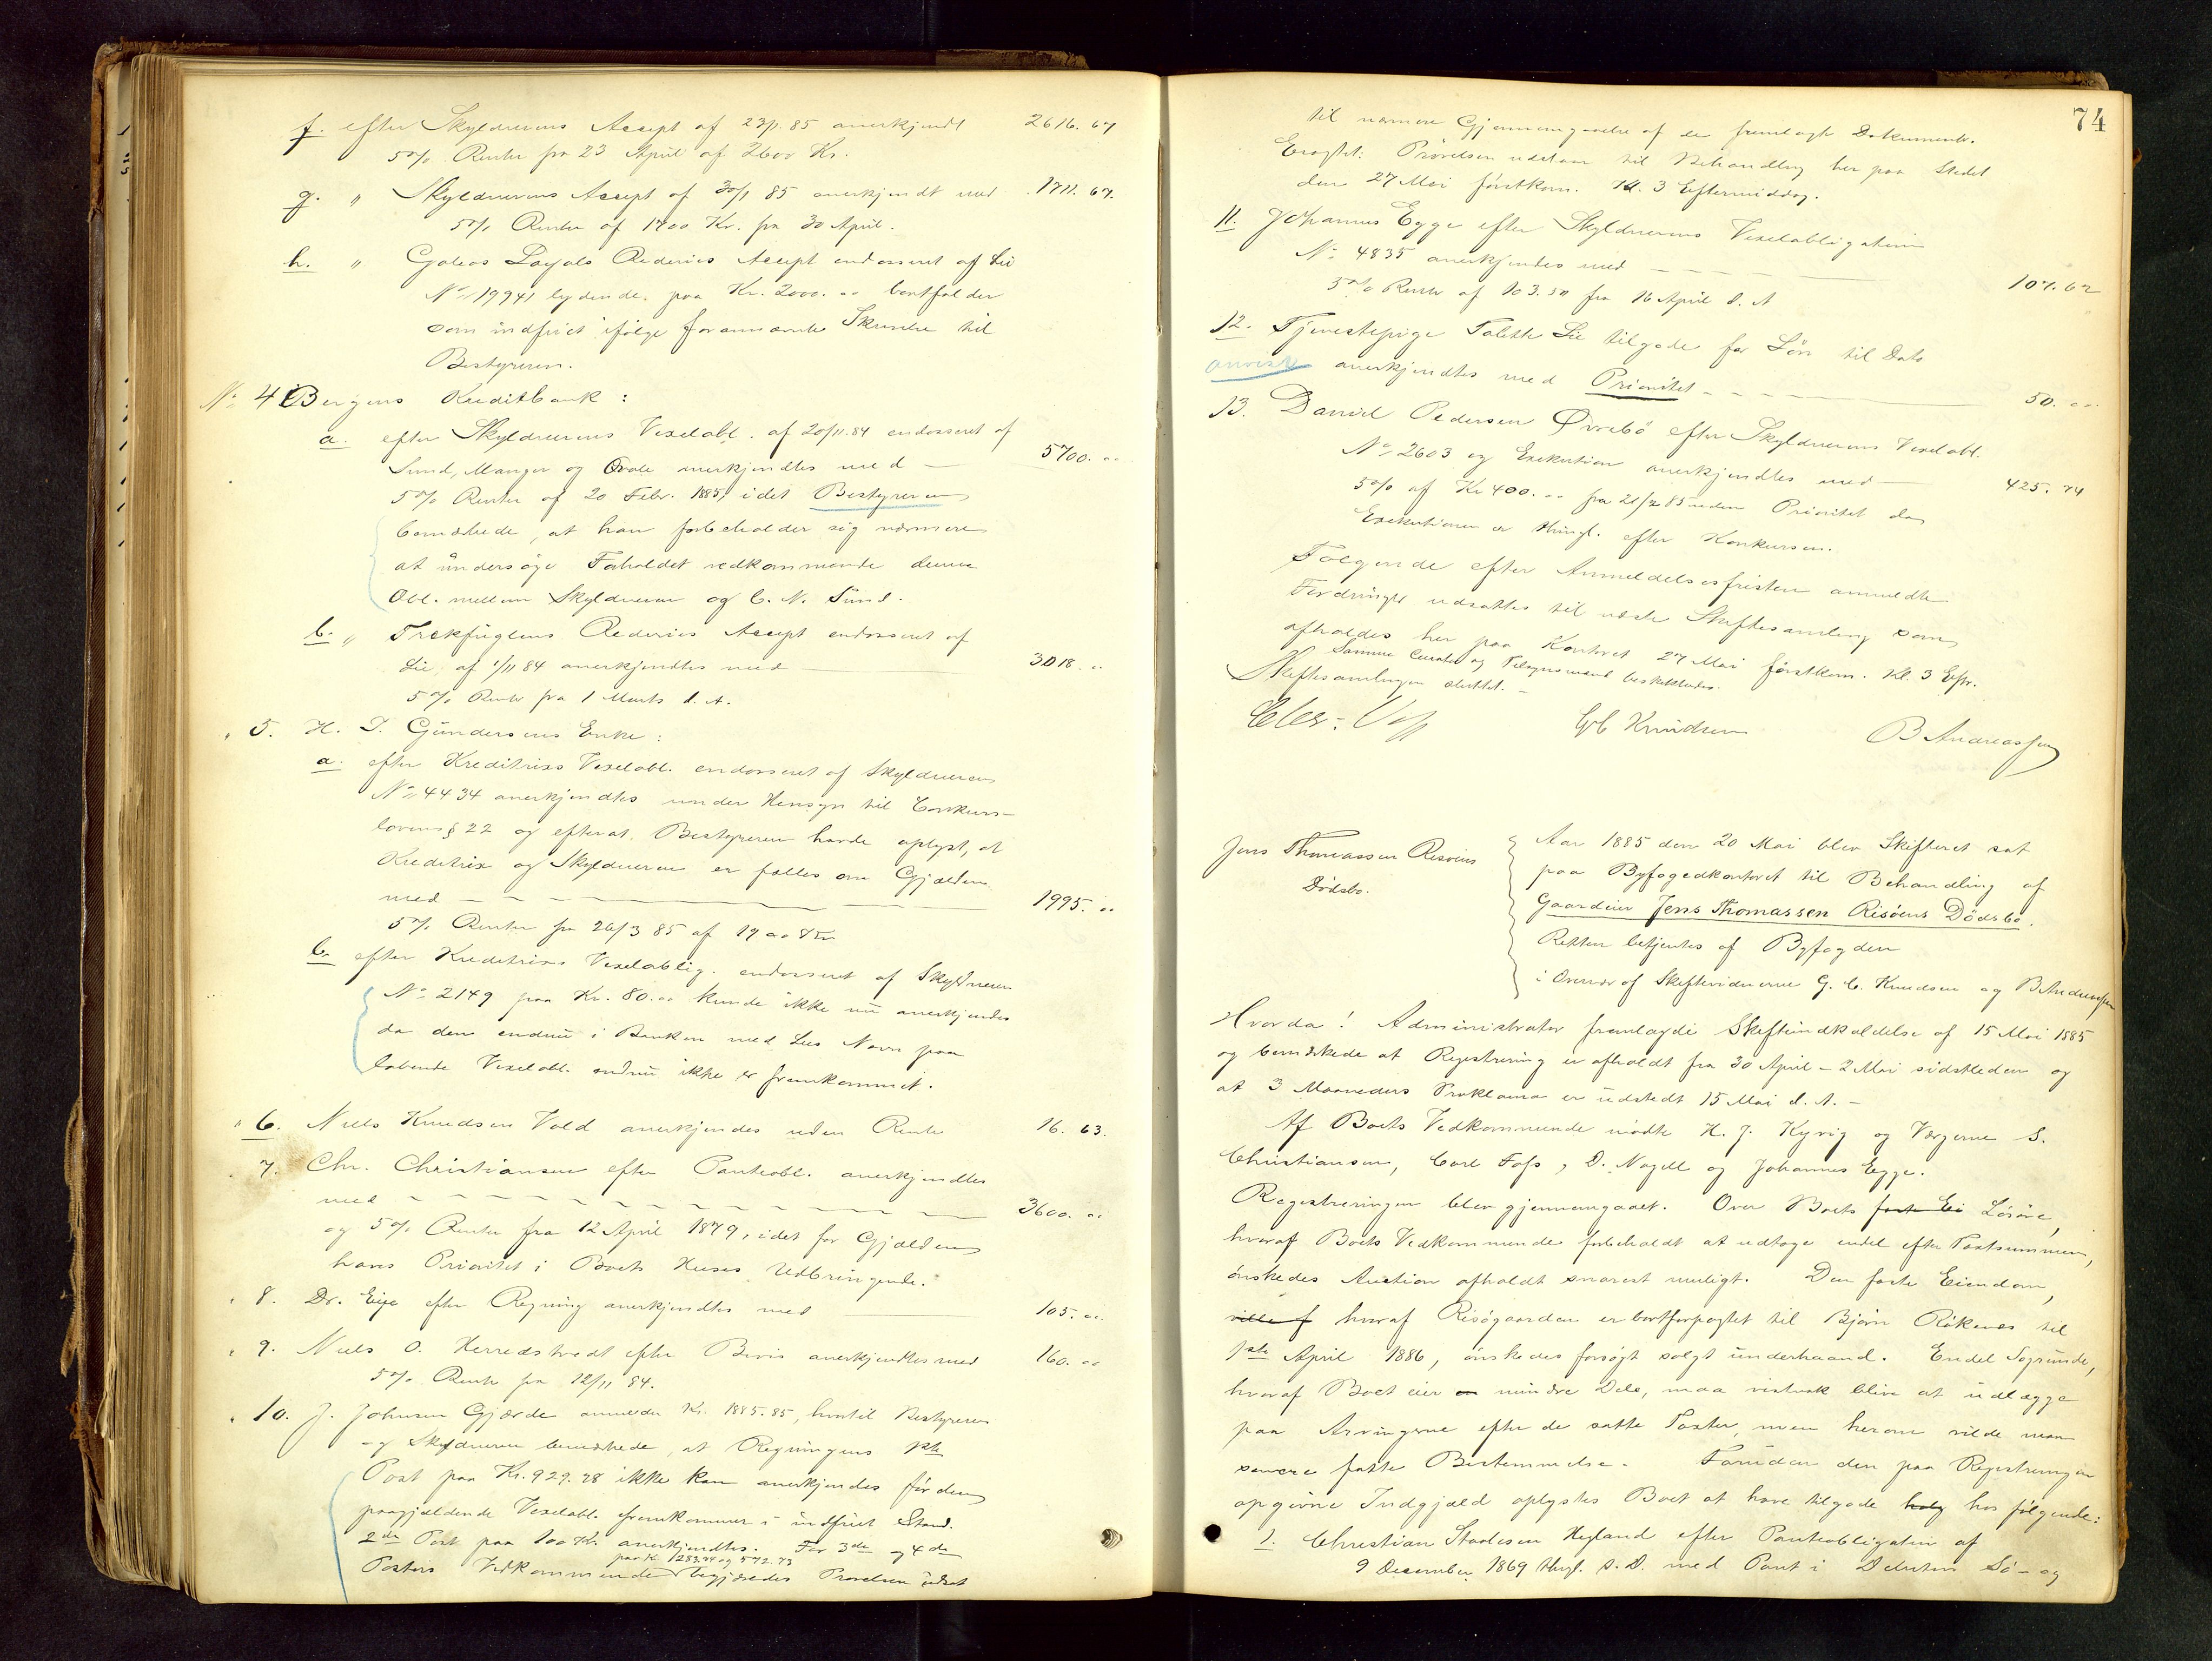 f. efter Skyldnerens Accept af 23/1. 85 anerkjendt 2616. 67
5 % Renter fra 23 April af 2600 Kr.
g. " Skyldnerens Accept af 30/1 85 anerkjendt med 1711. 67.
5 % Renter af 1700 Kr. fra 30 April.
h. " Galeas Rederies Accept endosseret af Lie
No 19941 lydende paa Kr. 2000. " bortfalder
som indfriet ifølge forannævnte Skrivelse til
Bestyreren.
No 4 Bergens Kreditbank :
a. efter Skyldnerens Vexelobl. af 20/11. 84 endosseret af
Sund, Manger og Qvale anerkjendtes med — 5700. "
5 % Renter af 20 Febr. 1885, idet Bestyreren
bemærkede, at han forbeholder sig nærmere
at undersøge Forholdet vedkommende denne
Obl. mellem Skyldneren og C. N. Sund.
b. " Trækfuglens Rederies Accept endosseret af
Lie, af 1/11 84 anerkjendtes med — 3018. "
5 % Renter fra 1 Marts d. A.
" 5. H. D. Gundersens Enke :
a. efter Kreditrixs Vexelobl. endosseret af Skyldneren
No 4434 anerkjendtes under Hensyn til Conkurs-
lovens § 22 og efterat Bestyreren havde oplyst, at
Kreditrix og Skyldneren er fælles om Gjælden
med — 1995. "
5 % Renter fra 26/3 85 af 1900 Kr
b. efter Kreditrixs Vexelobiig. endosseret af Skyldneren
No 2149 paa Kr. 80. " kunde ikke nu anerkjendes
da den endnu i Banken med Lies Navn paa
løbende Vexelobl. endnu ikke er fremkommet.
" 6. Niels Knudsen Vold anerkjendes uden Rente 16. 63.
7. Chr. Christiansen efter Panteobl. anerkjendtes
med — 3600. "
og 5 % Renter fra 12 April 1879, idet for Gjælden
hans Prioritet i Boets Huses Udbringende.
" 8. Dr. Eije efter Regning anerkjendtes med — 105. "
" 9. Niels O. Herredstvedt efter Bevis anerkjendtes med 160. "
5 % Rente fra 12/11 84.
" 10. J. Johnsen Gjærde anmelder Kr. 1885. 85, hvortil Bestyreren
og Skyldneren bemærkede, at Regningens 1ste
Post paa Kr. 929. 28 ikke kan anerkjendes før den
paagjældende Vexelobl. fremkommer i indfriet Stand.
2den Post paa 100 Kr. anerkjendtes. For 3die og 4de
paa Kr. 1283.84 og 572. 73
Posters Vedkommende begjæredes Prøvelsen udsat
74
til nærmere Gjennemgaaelse af de fremlagte Dokumenter.
Eragtet: Prøvelsen udstaar til Behandling her paa Stedet
den 27 Mai førstkom. Kl. 3 Eftermiddag.
11. Johannes Egge efter Skyldnerens Vexelobligation
No 4835 anerkjendes med — 107. 62
5 % Renter af 103. 50 fra 16 April d. A
12. Tjenestepige Tolette Lie tilgode for Løn til Dato
anvist anerkjendtes med Prioritet — 50. "
13. Daniel Pedersen Øvrebö efter Skyldnerens Vexelobl.
No 2603 og Exekution anerkjendtes med — 425. 74
5 % af Kr 400. " fra 21/2 85 uden Prioritet da
Exekutionen er thingl. efter Konkursen.
Følgende efter Anmeldelsesfristen anmeldte
Fordringer udsattes til næste Skiftesamling som
afholdes her paa Kontoret 27 Mai førstkom. Kl. 3 Eftr.
Samme Curator og Tilsynsmænd beskikkedes.
Skiftesamlingen sluttet. —
G C Knudsen B Andreassen
Jens Thomassen Risøens
Dødsbo.
Aar 1885 den 20 Mai blev Skifteret sat
paa Byfogedkontoret til Behandling af
Gaardeier Jens Thomassen Risøens Dødsbo.
Retten betjentes af Byfogden
i Overvær af Skiftevidnerne G. C. Knudsen og B Andreassen
Hvorda! Administrator fremlagde Skifteindkaldelse af 15 Mai 1885
og bemærkede at Registrering er afholdt fra 30 April - 2 Mai sidstleden og
at 3 Maaneders Proklama er udstedt 15 Mai d. A. —
Af Boets Vedkommende mødte H. J. Kyvig og Værgerne S.
Christiansen, Carl Foss, D. Nagell og Johannes Egge.
Registreringen blev gjennemgaaet. Over Boets faste Ei Løsøre,
hvoraf Boets Vedkommende forbeholdt at udtage endel efter Taxtsummen,
ønskedes Auction afholdt snarest muligt. Den faste Eiendom,
ville f hvoraf Risøgaarden er bortforpagtet til Bjørn Røkenes til
1ste April 1886, ønskedes forsøgt solgt underhaand. Endel Søgrunde,
hvoraf Boet eier en mindre Dele, maa vistnok blive at udlægge
paa Arvingerne efter de satte Taxter, men herom vilde man
senere fatte Bestemmelse. Foruden den paa Registreringen
opgivne Indgjæld oplystes Boet at have tilgode hos følgende:
1. Christian Staalesen Høyland efter Panteobligation af
9 December 1869 thinl. s. D. med Pant i Debitors Sø- og